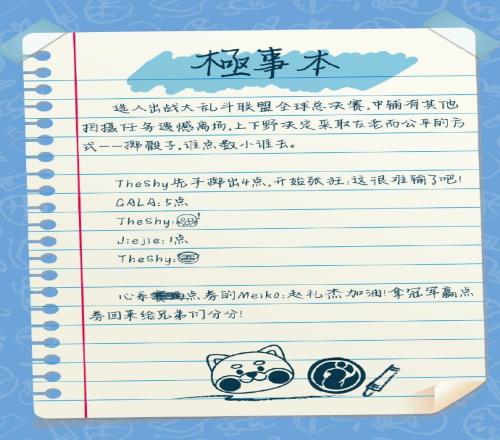 極事本
选人出战大乱斗联盟全球总决赛,中辅有其他
拍摄任务遗憾离场,上下野决定采取古老而公平的方
式——掷骰子,谁点数小谁去。
TheShy先手掷出4点,开始张狂:这很难输了吧!
GALA:5点
TheShy:
Jiejie:1点
TheShy:
心系点券的Meiko:赵礼杰加油!拿冠军赢点
券回来给兄弟们分分!